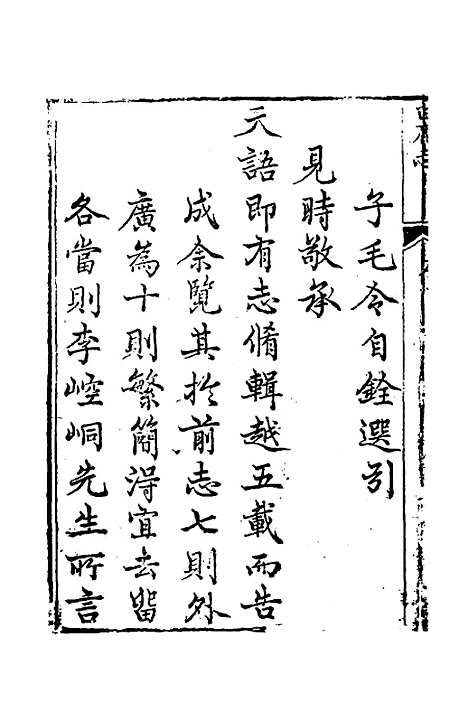 子毛令自銓選引
見時敬承
天語即有志脩輯越五載而告
成余覽其於前志七則外
廣為十則繁簡得宜去畱
各當則李崆峒先生所言